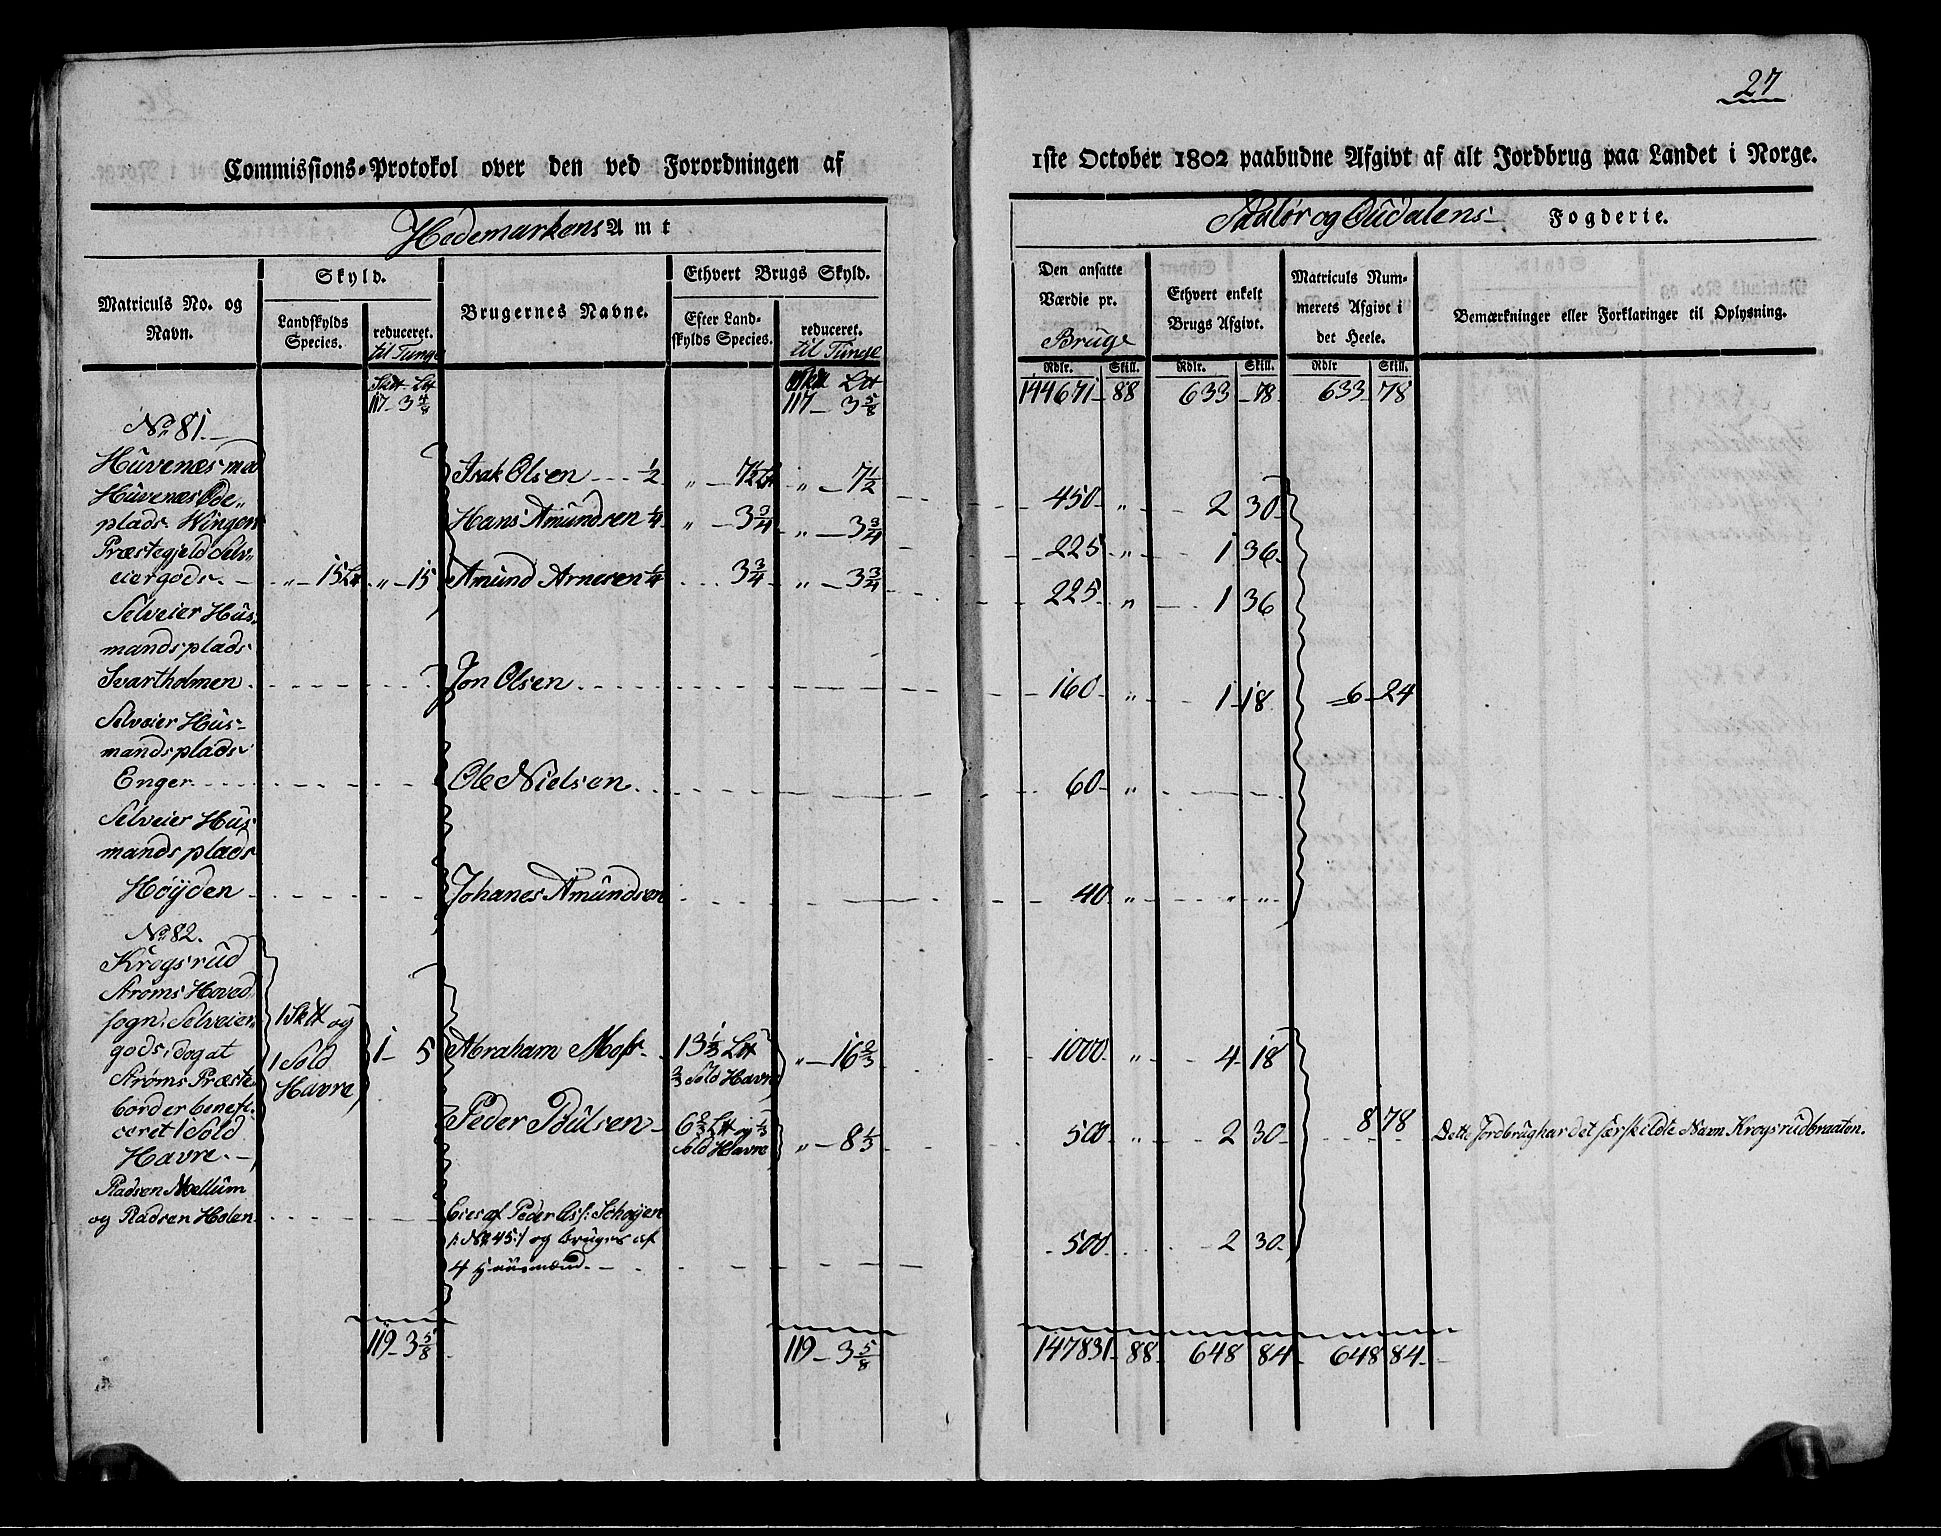 27
Commissions-Protokol over den ved Forordningen af 1ste October 1802 paabudne Afgivt af alt Jordbrug paa Landet i Norge.
Hedemarkens Amt
Soløer og Oudalens Fogderie.
Matriculs No. og Navn.
Skyld.
Landskylds Species.
reduceret. til Tunge
Brugernes Navne.
Ethvert Brugs Skyld.
Efter Landskylds Species.
reduceret. til Tunge
Den ansatte Værdie pr. Bruge
Ethvert enkelt Brugs Afgivt.
Matriculs Nummerets Afgivt i det Heele.
Bemærkninger eller Forklaringer til Oplysning.
Rdlr. Skill. Rdlr. Skill. Rdlr Skill.
117 - 3 4/8 117 - 3 5/8 144671 - 88 633 - 78 633 - 78
No 81.
Huvenæs med
Huvenæs Øde-
plads Winger
Præstegjeld Selv-
eiergods. - " - 15 Lt " - 15
Isak Olsen 1/2 " - 7 1/2 Lt " - 7 1/2 450 " 2 30
Hans Amundsen 1/4 " - 3 3/4 " - 3 3/4 225 " 1 36
Amund Arnesen 1/4 3 3/4 " - 3 3/4 225 " 1 36
Selveier Hus-
mandsplads
Svartholmen Jon Olsen 160 " 1 18 6 - 24
Selveier Hus-
mandsplads
Enger Ole Nielsen 60 "
Selveier Hus
mandsplads
Høyden Johanes Amundsen 40 " " "
No 82.
Krogsrud
Strøms Hoved
sogn, Selveier
gods, dog at
Strøms Præste
bord er benefi-
ceret 1 Sold
Havre. -
1 Skt og
1 Sold
Havre
1 - 5
Abraham Moss 13 1/3 Lt
2/3 Sold Havre " - 16 2/3 1000 " 4 18
Peder Poulsen 6 2/3 Lt og 1/3
Sold Havre " - 8 1/3 500 " 2 30 8 78 Dette Jordbrug har det særskildte Navn Krogsrudbraaten.
Pladsen Mellum
og Pladsen Holen
eies af Peder Schøyen
/: No 45 :/ og bruges af
4 Huusmænd. 500 2 30
119 - 3 5/8 119 - 3 5/8 147831 - 88 648 84 648 84